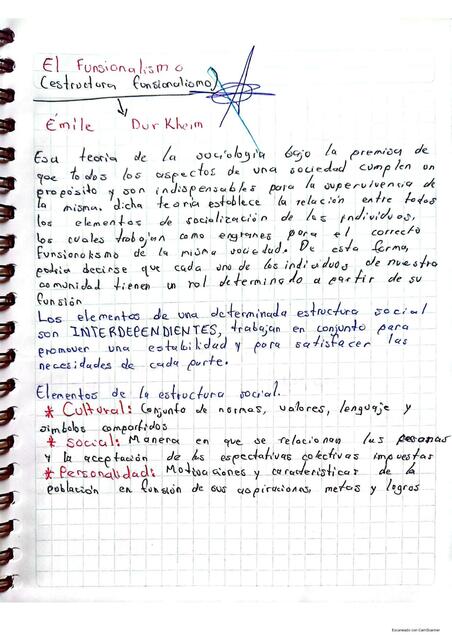 El Funsionalismo
(estructura funsionalismo)
Émile Durkheim
Esa teoria de la sociologia bajo la premisa de
que todos los aspectos de una sociedad cumplen un
propósito y son indispensables para la supervivencia de
la misma. dicha teoria establece la relación entre todos
los elementos de socialización de los individuos,
los cuales trabajan como engranes para el correcto
funsionalismo de la misma sociedad. De esta forma,
podria decirse que cada uno de los individuos de nuestra
comunidad tienen un rol determinado a partir de su
funsión
Los elementos de una determinada estructura social
son INTERDEPENDIENTES, trabajan en conjunto para
promover una estabilidad y para satisfacer las
necesidades de cada parte.
Elementos de la estructura social.
* Cultural: Conjunto de normas, valores, lenguaje y
simbolos compartidos
* Social: Manera en que se relacionan las personas
y la aceptación de las espectativas colectivas impuestas
* Personalidad: Motivaciones y caracteristicas de la
población en funsión de sus aspiraciones, metas y logros
Escaneado con CamScanner